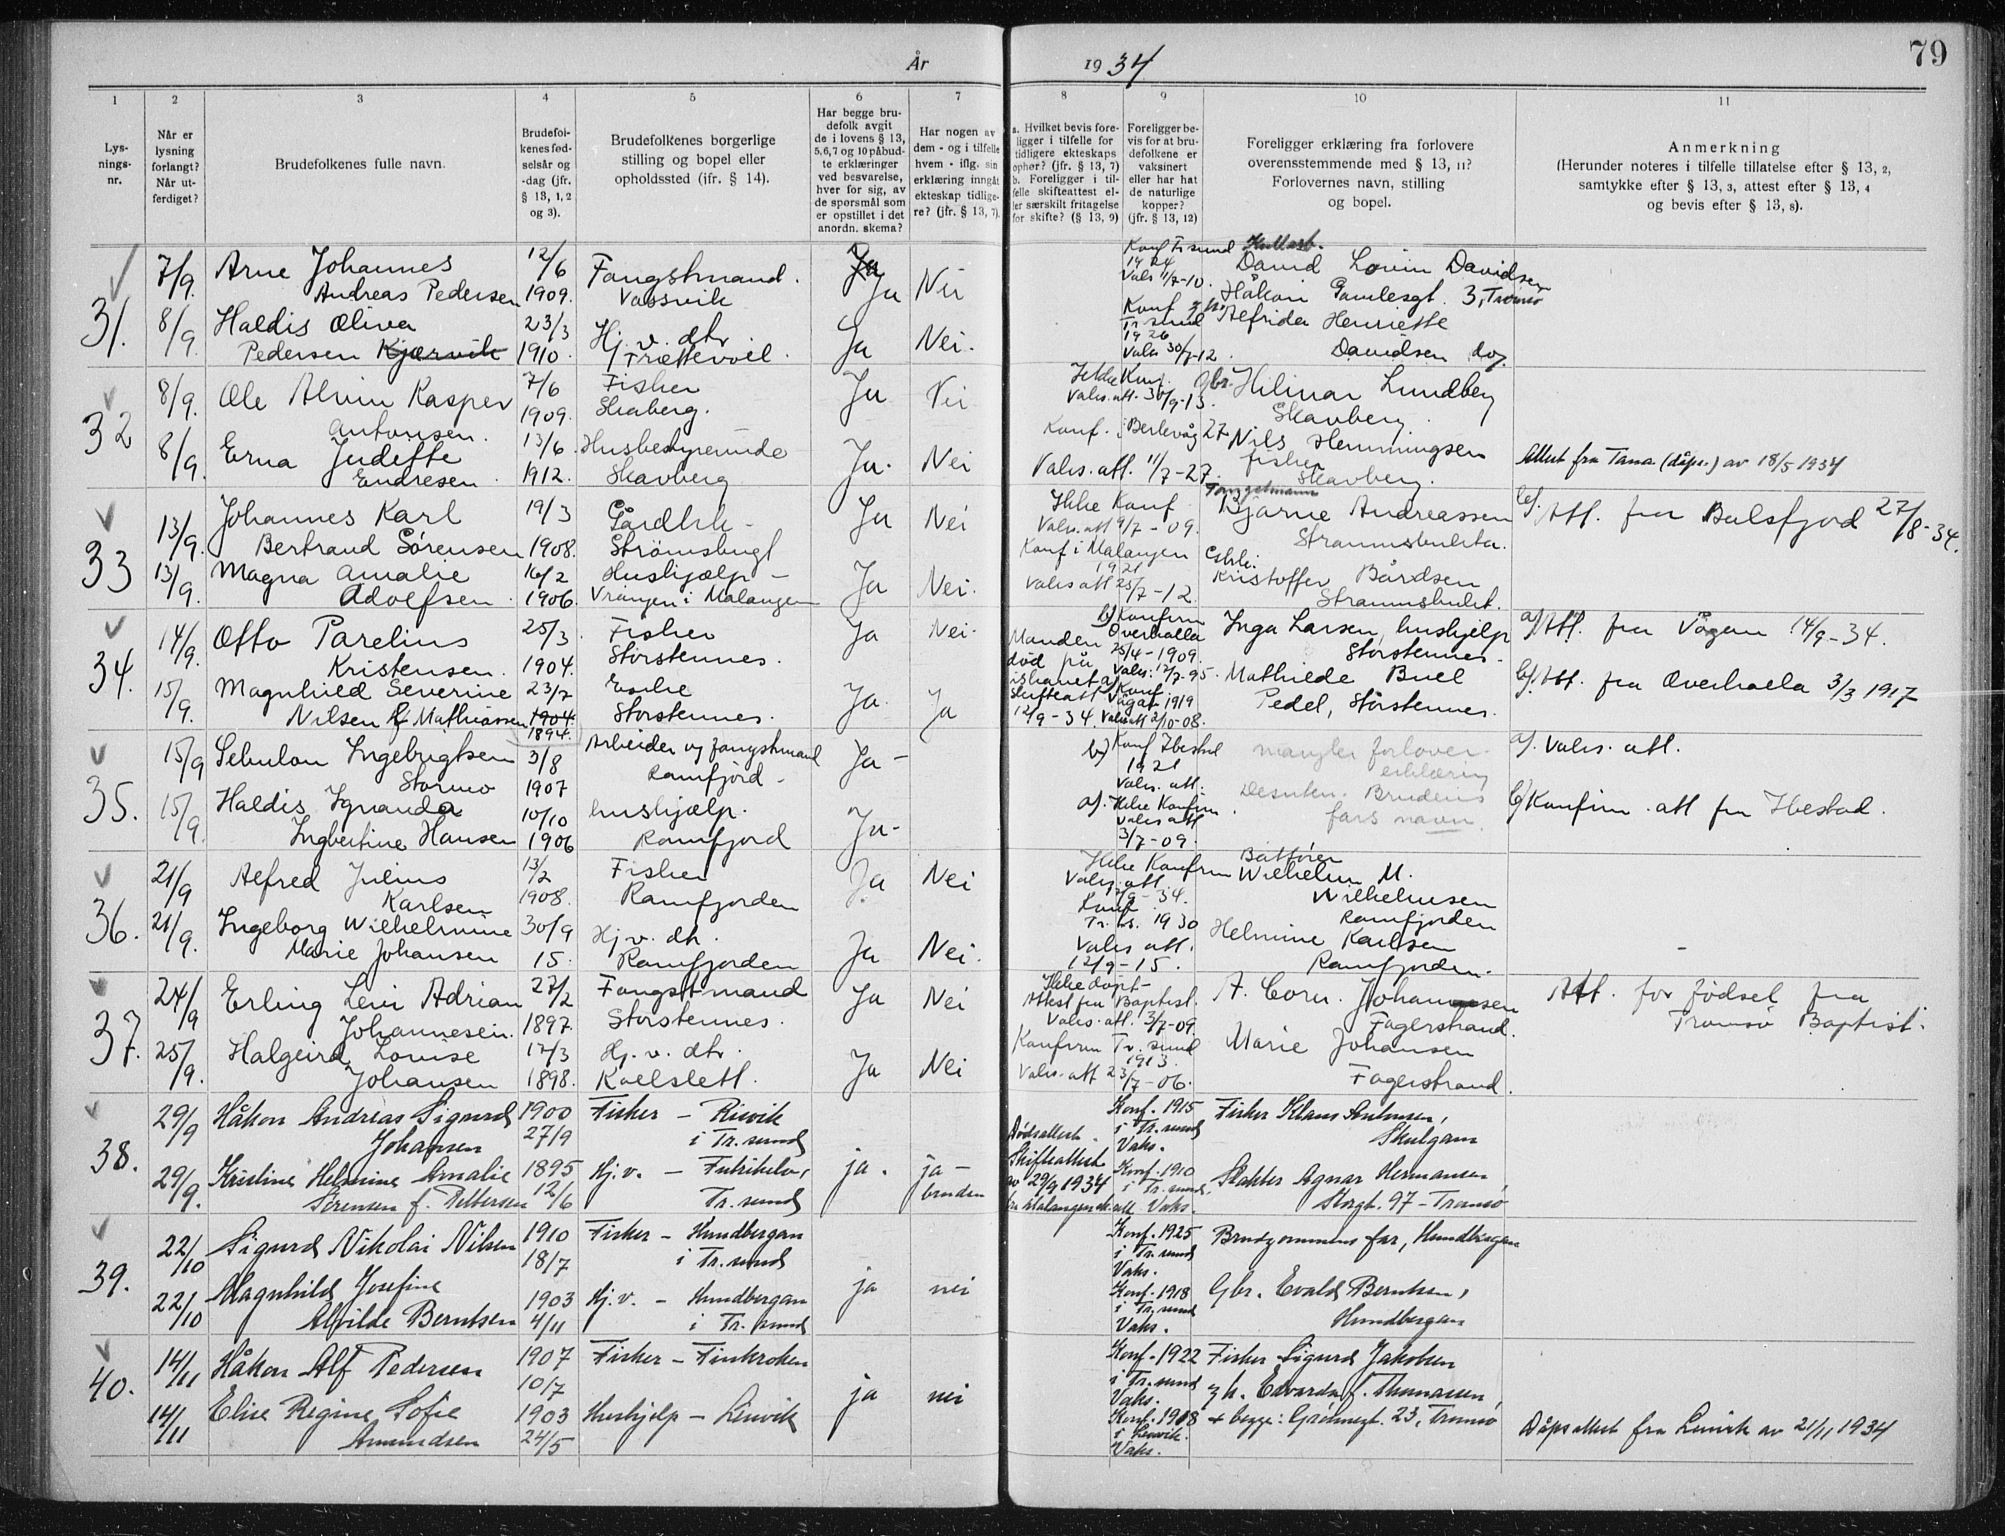 År 1934
79
1 2 3 4 5 6 7 8 9 10 11
Lys-
nings-
nr.
Når er
lysning
forlangt?
Når ut-
ferdiget?
Brudefolkenes fulle navn.
Brudefol-
kenes fød-
selsår og
-dag (jfr.
§ 13, 1, 2
og 3).
Brudefolkenes borgerlige
stilling og bopel eller
opholdssted (ifr. § 14).
Har begge bru-
defolk avgit
de i lovens § 13,
5,6,7 og 10 påbud-
te erklæringer
ved besvarelse,
hver for sig, av
de spørsmål som
er opstillet i det
anordn. skema?
Har nogen av
dem - og i tilfelle
hvem - iflg. sin
erklæring inngått
ekteskap tidlige-
re? (jfr. § 13, 7).
a. Hvilket bevis fore-
ligger i tilfelle for
tidligere ekteskaps
ophør? (jfr. § 13, 7)
b. Foreligger i til-
felle skifteattest el-
ler særskilt fritagelse
for skifte? (§ 13, 9)
Foreligger be-
vis for at bru-
defolkene er
vaksinert
eller har hat
de naturlige
kopper?
(jfr. § 13, 12)
Foreligger erklæring fra forlovere
overensstemmende med § 13, 11?
Forlovernes navn, stilling
og bopel.
Anmerkning
(Herunder noteres i tilfelle tillatelse efter § 13, 2,
samtykke efter § 13, 3, attest efter § 13, 4
og bevis efter § 13, 8).
31.
7/9. Arne Johannes 12/6 Fangstmand. Ja Nei
Andreas Pedersen 1909. Vassvik
Konf Tr sund
1924
Vaks 11/7-10.
David Lovin Davidsen
Håkon Gamlesgt. 3, Tromsø
8/9. Haldis Oliva 23/3 Hj. v. dtr Ja Nei.
Pedersen Kjærvik 1910. Trættevoll.
Konf
Tr. sund
1926
Vaks 30/7-12.
Alfrida Henriette
Davidsen do/.
32
8/9. Ole Alvin Kasper 7/6 Fisker Ja Nei
Antonsen. 1909. Skavberg.
Ikke Konf.
Vaks. att. 30/9-13.
Gbr. Hilmar Lundberg
Skavberg.
8/9. Erna Judette 13/6. Husbestyrerinde Ja. Nei
Endresen. 1912. Skavberg
Konf. i Berlevåg 27
Vaks. att. 11/7-27.
Nils Hemmingsen
fisker
Skavberg.
Attest fra Tana (dåps.) av 18/5 1934
33
13/9. Johannes Karl 19/3 Gårdbr. - Ja Nei
Bertrand Sørensen 1908. Strömsbugt
Ikke Konf
Vaks. att 9/7-09.
Fangstmann
Bjarne Andreassen
Straumsbukta.
b/. Att. fra Balsfjord 27/8-34.
13/9. Magna Amalie 16/2 Hushjælp - Ja Nei.
Adolfsen. 1906. Vrangen i Malangen
Konf i Malangen
1921
Vaks att 25/7-12.
Kristoffer Bårdsen
Straumsbukt.
34.
14/9. Otto Parelius 25/3. Fisker Ja Nei.
Kristensen. 1904. Storstennes.
Inga Larsen, hushjelp
Storstennes.
a/ Att. fra Vågan 14/9-34.
15/9. Magnhild Severine 23/7 Enke Ja. Ja
Nilsen f. Mathiassen 1904. Storstennes.
1894.
Manden
død på
ishavet
Skifteatt
12/9-34.
b) Konfirm
Overhalla
25/4-1909.
Vaks. 12/7-95.
a/ Konf.
Vågan 1919
Vaks att 2/10-08.
Mathilde Buel
Pedel, Storstennes.
b/. Att. fra Overhalla 3/3 1917
35.
15/9 Sebulon Ingebrigtsen 3/8 Arbeider og fangstmand Ja-
Stormo 1907 Ramfjord -
b) Konf Ibestad
1921
Vaks. att.
mangler forlover-
erklæring
a/. Vaks. att.
15/9. Haldis Ignanda 10/10 hushjælp. Ja-
Ingbertine Hansen 1906 Ramfjord
a/. Ikke Konfirm.
Vaks att
3/7-09.
Desuten Brudens
fars navn.
b/ Konfirm. att fra Ibestad.
36.
21/9 Alfred Julius 13/2 Fisker Ja. Nei
Karlsen 1908. Ramfjorden
Ikke Konfirm
Vaks. att
/9-34.
Wilhelm M.
Wilhelmsen
Ramfjorden
21/9. Ingeborg Wilhelmine 30/9 Hj. v. dtr. Ja Nei.
Marie Johansen 15. Ramfjorden
Konf
Tr. 1930
Vaks att.
12/9-15.
Helmine Karlsen
Ramfjorden.
37.
24/9 Erling Levi Adrian 27/2 Fangstmand Ja Nei
Johannesein. 1897. Storstennes.
Ikke døpt-
Attest fra Baptist.
Vaks. att. 3/7-09.
A. Corn. Johannesen
Fagerstrand.
Att. for fødsel fra
Tromsø Baptist.
25/9. Halgeird Louise 12/3 Hj. v. dtr. Ja Nei
Johansen 1898. Kvalslett.
Konfirm Tr. sund
1913
Vaks. att 23/7-06.
Marie Johansen
Fagerstrand.
38.
29/9 Håkon Andreas Sigurd 1900 Fisker - Risvik
Johansen 27/9 i Tr. sund
Konf. 1915
i Tr. sund
Vaks.
Fisker Klaus Antonsen,
Skulgam
29/9. Kristine Helmine Amalie 1895 Hj.v. - Futrikelv, ja. ja -
Sørensen f. Pettersen 12/6 Tr. sund bruden
Dødsattest.
Skifteattest
av 29/9 1934
fra Malangen
Konf. 1910
i Tr. sund.
Vaks.
Slakter Agnar Hermansen,
Storgt. 97 - Tromsø
39.
22/10 Sigurd Nikolai Nilsen 1910 Fisker - Hundbergan
18/7 i Tr. sund
Konf. 1925
i Tr. sund
Vaks.
Brudgommens far, Hundbergan
22/10 Magnhild Josefine 1903 Hj.v. - Hundbergan ja nei
Alvilde Berntsen 4/11 i Tr. sund
Konf. 1918
i Tr. sund
Vaks.
Gbr. Evald Berntsen,
Hundbergan
40.
14/11 Håkon Alf Pedersen 1907 Fisker - Finkroken
10/7
Konf. 1922
i Tr. sund
Vaks.
Fisker Sigurd Jakobsen
g h. Edvarda f. Thomassen,
14/11 Elise Regine Sofie 1903 Hushjelp - Lenvik ja nei
Amundsen 24/5
Konf. 1918
i Lenvik.
Vaks.
begge: Grønnegt. 23, Tromsø
Dåpsattest fra Lenvik av 21/11 1934